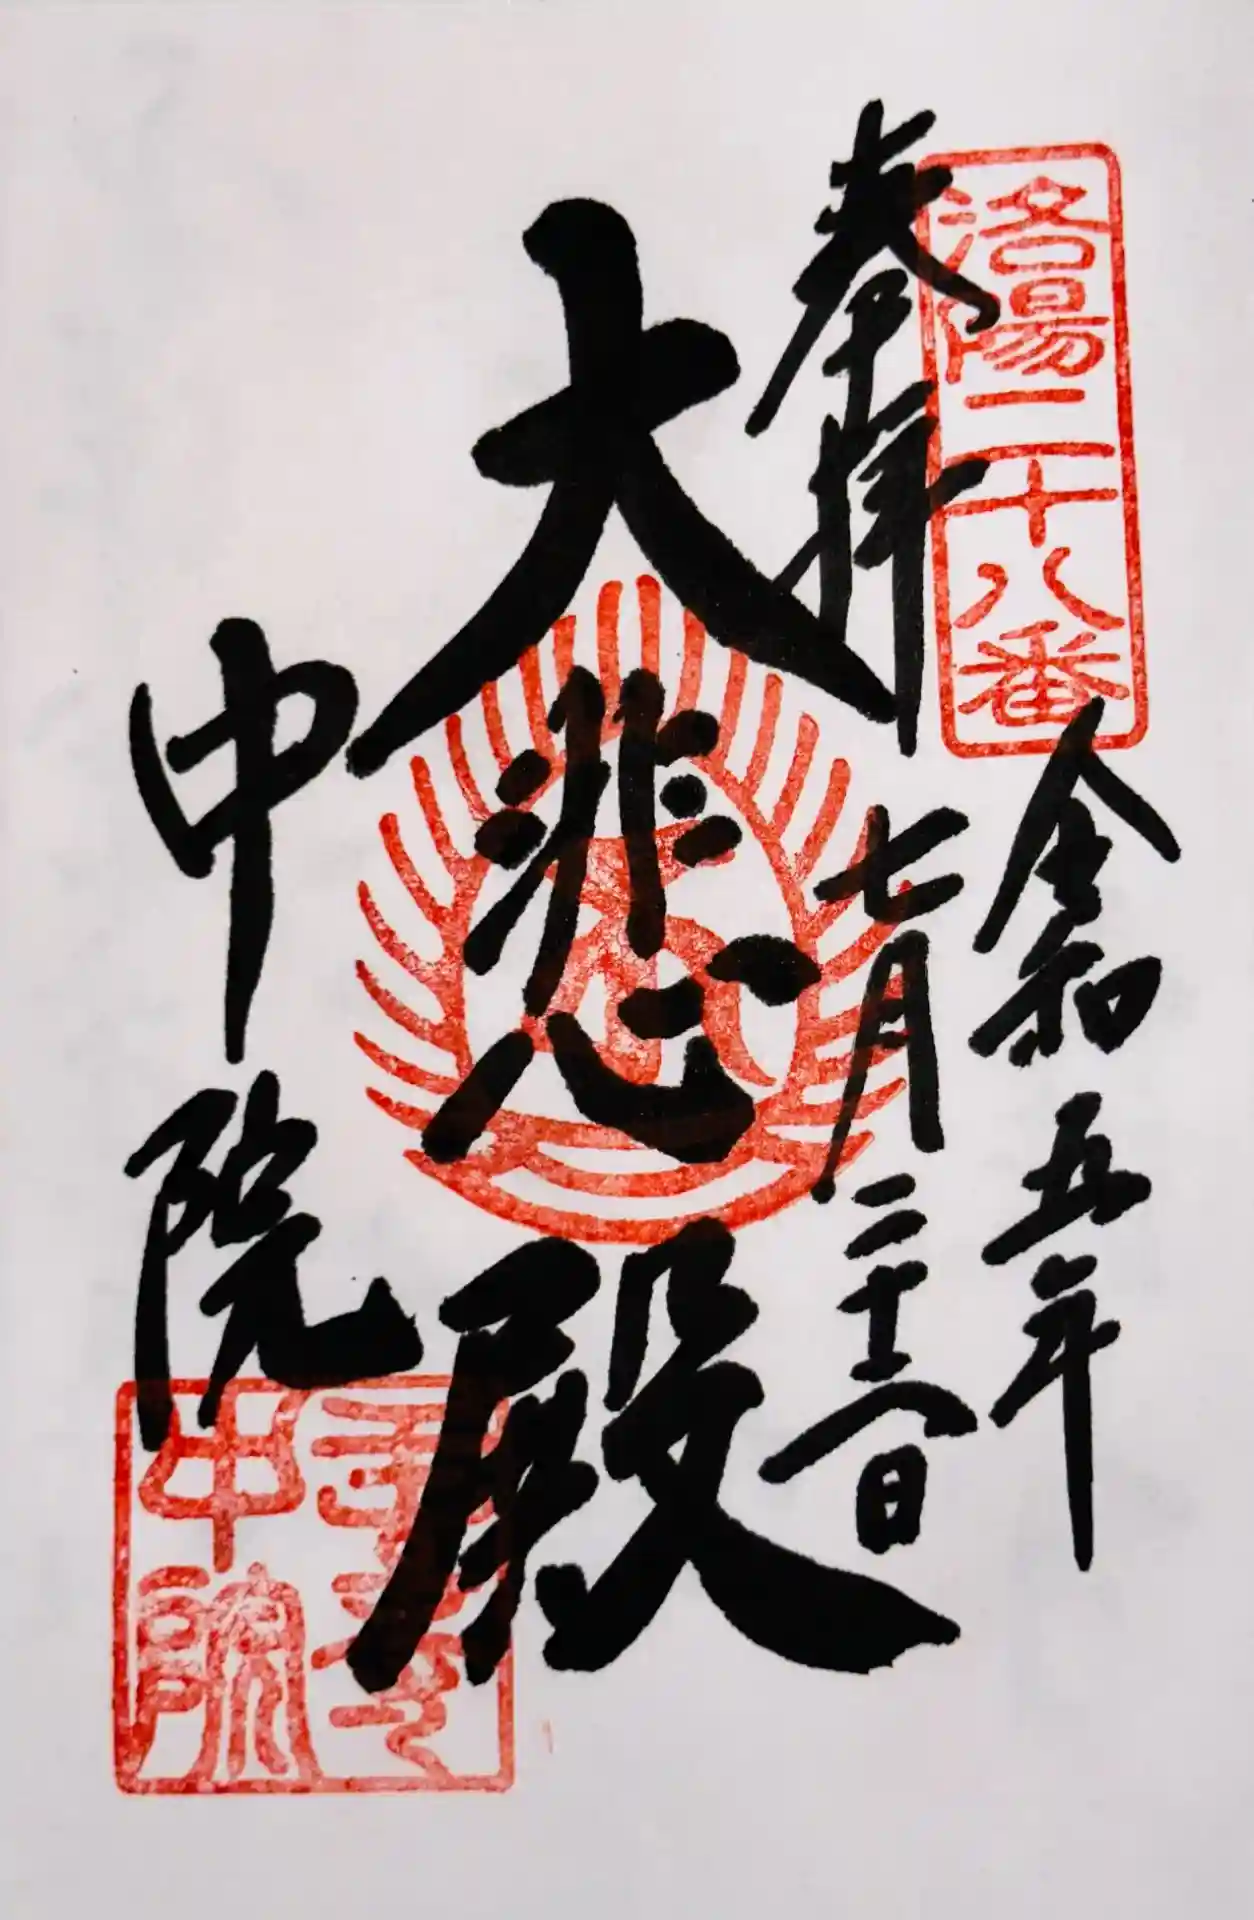 洛陽二十八番
奉拝
令和五年
七月二十六日
大悲殿
中院
中院